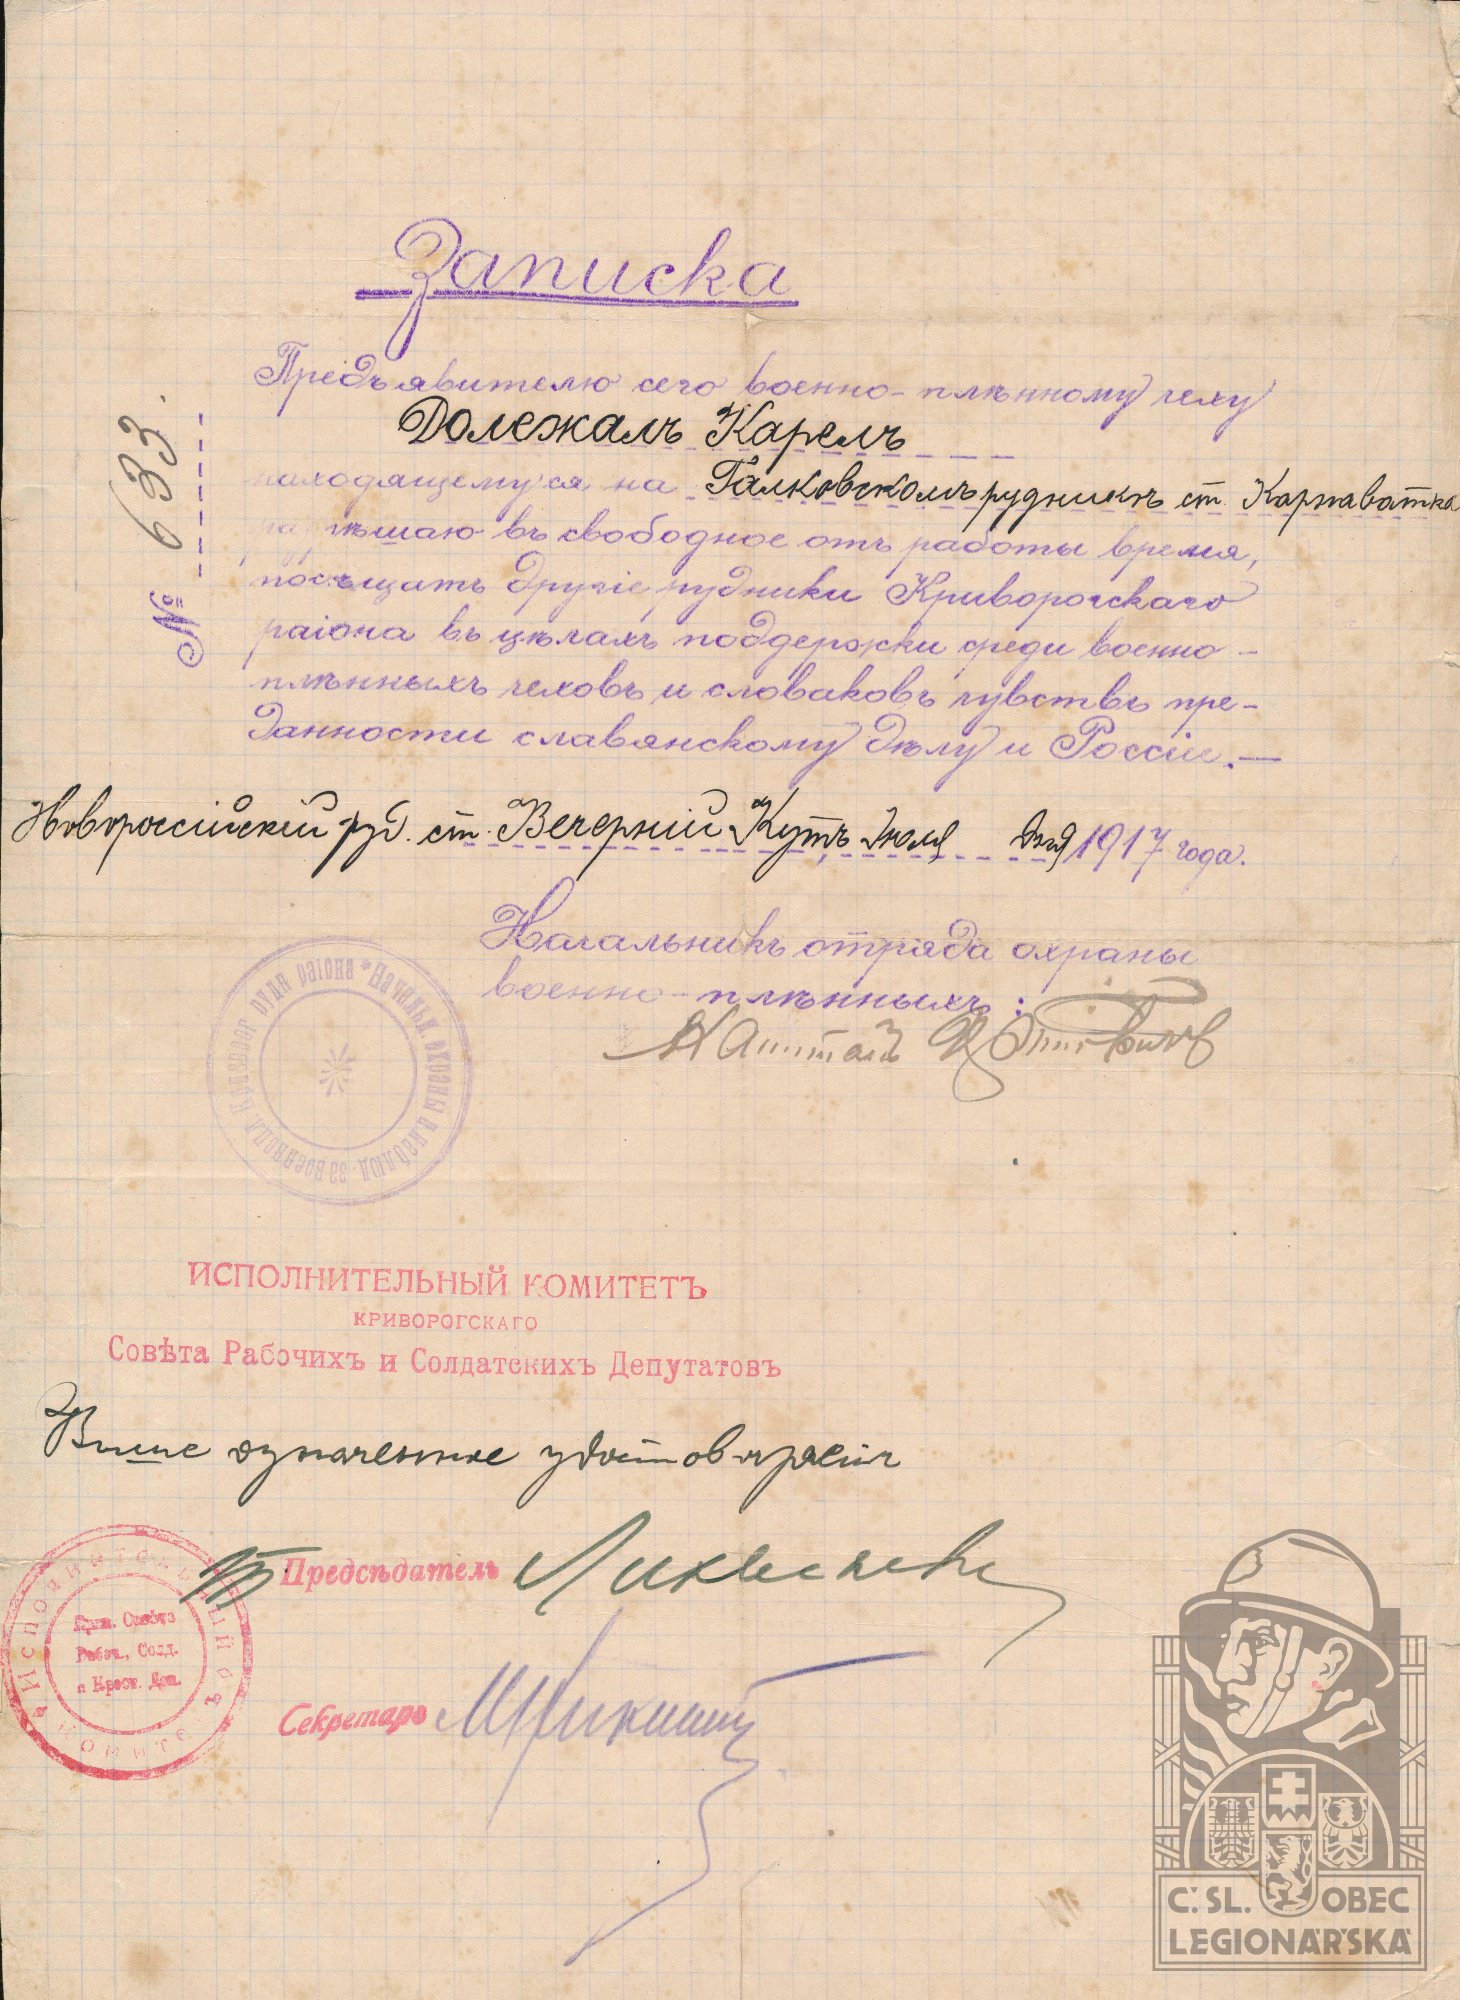 Записка
№ 633.
Предъявителю сего военно-плѣнному чеху
Долежалъ Карелъ
находящемуся на Галковскомъ рудникѣ ст. Карнаватка
разрѣшаю въ свободное отъ работы время,
посѣщать другіе рудники Криворогскаго
раіона въ цѣлахъ поддержки среди военно-
плѣнныхъ чеховъ и словаковъ чувствъ пре-
данности славянскому дѣлу и Россіи.—
Новороссійскій руд. ст. Вечерній Кутъ, Июля дня 1917 года.
Начальникъ отряда охраны
военно-плѣнныхъ:
Капитанъ
ИСПОЛНИТЕЛЬНЫЙ КОМИТЕТЪ
КРИВОРОГСКАГО
Совѣта Рабочихъ и Солдатскихъ Депутатовъ
Выше означенное
Предсѣдатель
Секретарь
Совѣта
Рабоч., Солд.
и Крест. Деп.
Č. SL. OBEC
LEGIONÁŘSKÁ